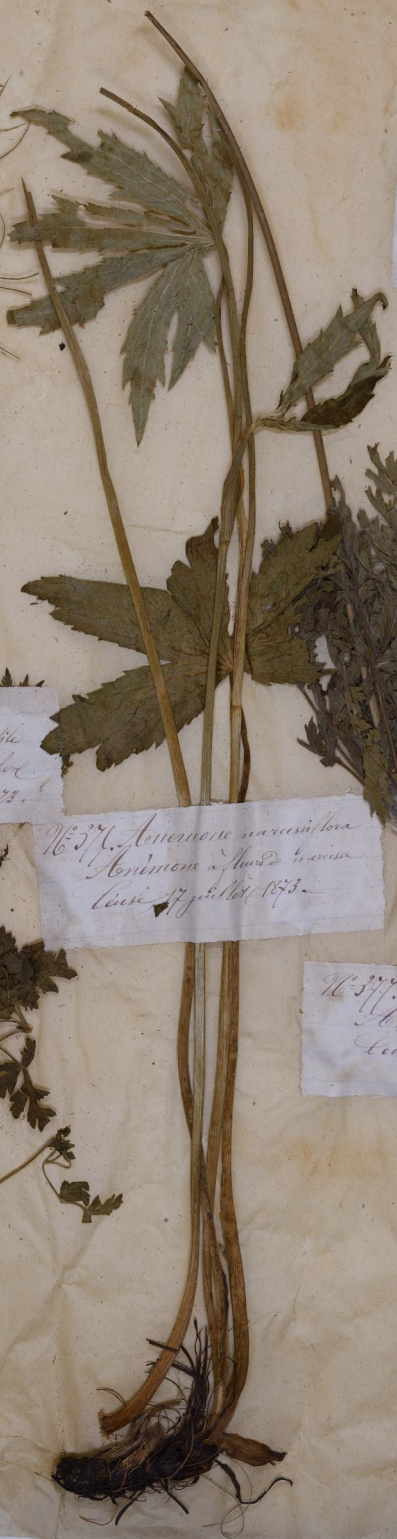 Nº 371. Anemone narcissiflora
Anémone à fleurs de narcisse
Céuse 17 juillet 1873.
73.
Nº 377.